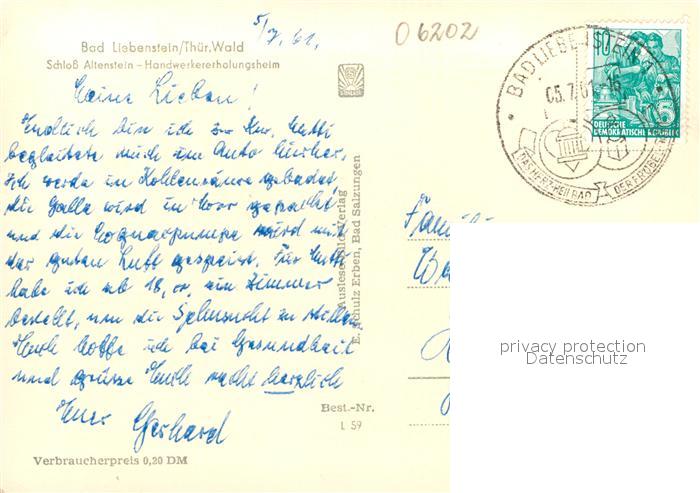 5/7.61.
06202
Bad Liebenstein/Thür. Wald
Schloß Altenstein – Handwerkererholungsheim
Meine Lieben!
Endlich bin ich zur Kur. Mutti
begleitete mich im Auto hierher.
Ich werde in Kohlensäure gebadet,
die Galle wird in Moor gepackt
und die Cognacpumpe wird mit
der guten Luft gespeist. Für Mutti
habe ich ab 18. ein Zimmer
bestellt, um die Sehnsucht zu stillen.
Euch hoffe ich bei Gesundheit
und grüsse Euch recht herzlich
Euer Gerhard
Verbraucherpreis 0,20 DM
Auslese-Bild-Verlag
E. Schulz Erben, Bad Salzungen
Best.-Nr.
L 59
BAD LIEBENSTEIN
05.7.61
DAS HERZHEILBAD
DEUTSCHE
DEMOKRATISCHE REPUBLIK
privacy protection
Datenschutz